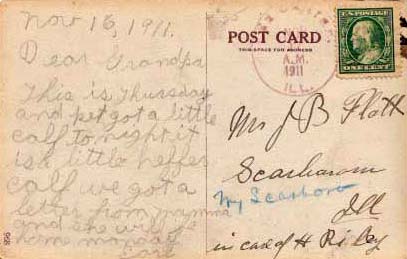 Nov 16, 1911.
Dear Grandpa
This is Thursday
and pet got a little
calf to night it
is a little heffer
calf we got a
letter from mamma
and she will be
home monday
956
POST CARD
THIS SPACE FOR ADDRESS
A.M.
1911
ILL.
U.S. POSTAGE
ONE CENT
Mr J B Flatt
Scarboro
Ill
in care of H Riley